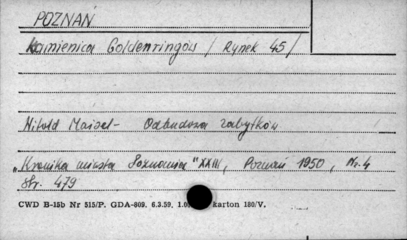 POZNAŃ
Kamienica Goldenringów / Rynek 45 /
Witold Maisel - Odbudowa zabytków
„Kronika miasta Poznania" XXIII, Poznań 1950, Nr. 4
Str. 479
CWD B-15b Nr 515/P. GDA-809. 6.3.59. karton 180/V.